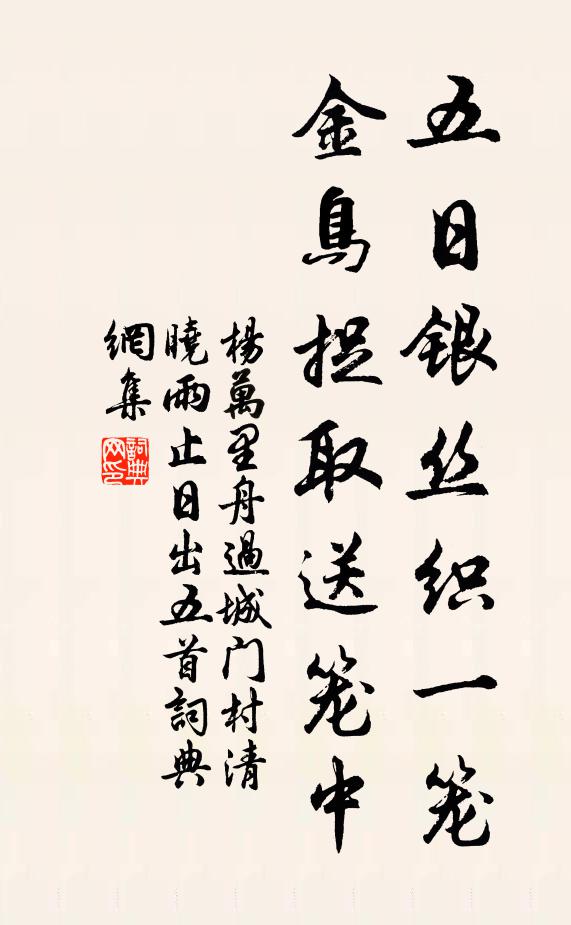 五日银丝织一笼
金乌捉取送笼中
楊萬里舟過城门村清
曉雨止日出五首詞典
網集
詞典网印